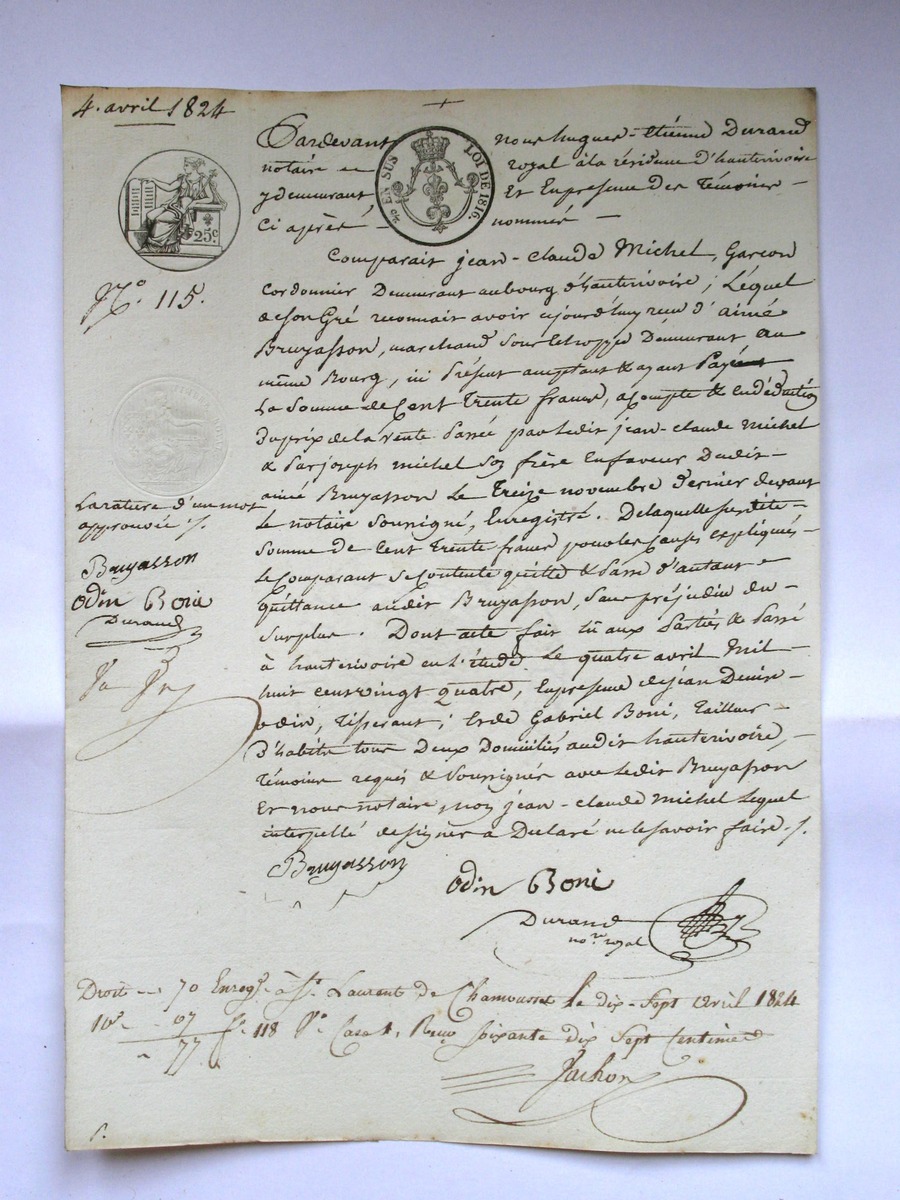 4. avril 1824
Pardevant nous hugues-étienne Durand
notaire royal à la résidence d'hauterivoire
y demeurant Et En présence des Témoins
Ci après nommés
EN SUS LOI DE 1816.
25c.
N.o 115.
Comparait jean-claude Michel, Garçon
Cordonnier Demeurant au bourg d'hauterivoire; Lequel
de son Gré reconnait avoir ajourd'huy reçu d'aimé
Bruyasson, marchand Demeurant au
même Bourg, ici Présent acceptant & ayant Payé
La Somme de Cent Trente francs, acompte & en déduction
du prix de la vente Passée par ledit jean-claude michel
& Par joseph michel son frère En faveur Dudit
aimé Bruyasson Le Treize novembre dernier devant
Le notaire soussigné, Enregistré. De laquelle susdite
Somme de Cent Trente francs pour les Causes expliqués
Le Comparant se Contente quitte & Passe d'autant
quittance audit Bruyasson, Sans préjudice du
Surplus. Dont acte fait lu aux Parties & Passé
à hauterivoire en l'étude Le quatre avril Mil
huit cent vingt quatre, En présence de jean Denis
odin, Tisserant; et de Gabriel Boni, Tailleur
d'habits tous Deux Domiciliés audit hauterivoire,
Témoins requis & Soussignés avec Ledit Bruyasson
Et nous notaire, non jean-claude Michel Lequel
interpellé de signer a Déclaré ne le savoir faire ./.
La rature d'un mot
approuvée ./.
Bruyasson
odin Boni
Durand
Bruyasson
odin Boni
Durand
no.re royal
Droit 70 Enreg.é à S.t Laurent de Chamousset le dix-Sept avril 1824
10e 07 f.o 118 Case 1, Reçu soixante dix Sept Centimes
77
Jachon